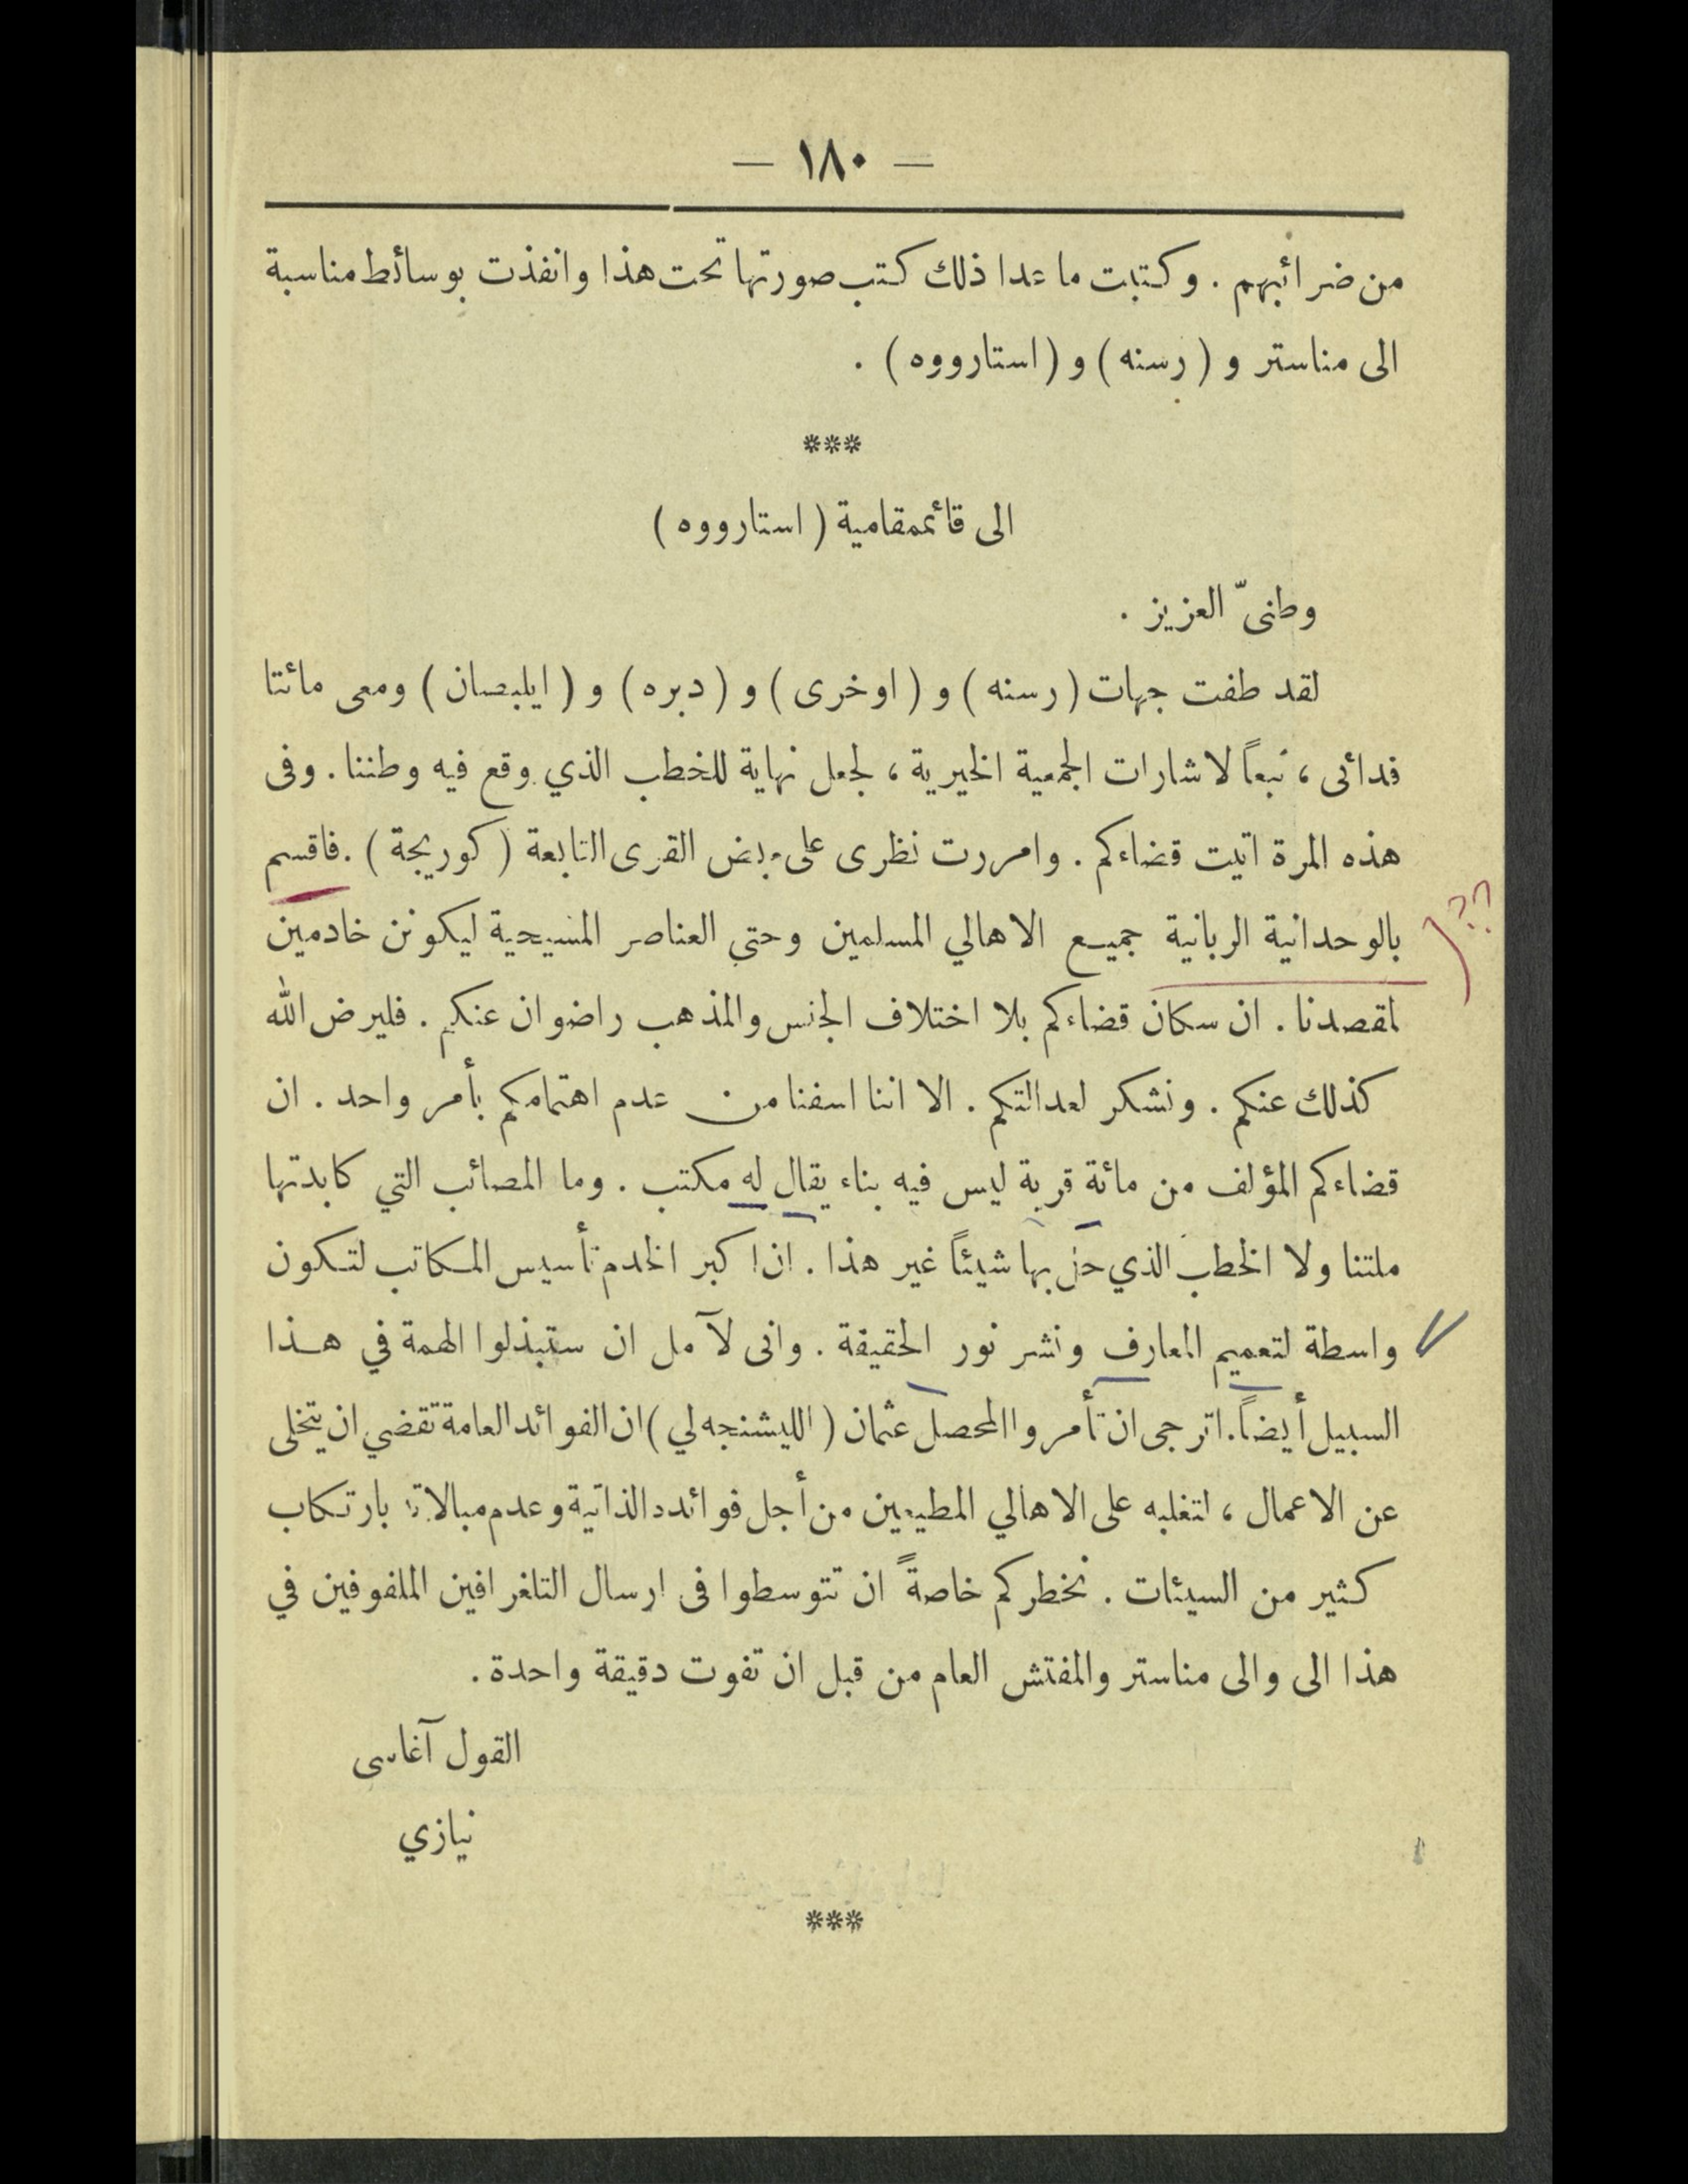 — ١٨٠ —
من ضرائبهم . وكتبت ما عدا ذلك كتب صورتها تحت هذا وانفذت بوسائط مناسبة
الى مناستر و ( رسنه ) و ( استارووه ) .
***
الى قائممقامية ( استارووه )
وطنىّ العزيز .
لقد طفت جهات ( رسنه ) و ( اوخرى ) و ( دبره ) و ( ايلبصان ) ومعى مائتا
فدائى ، تبعاً لاشارات الجمعية الخيرية ، لجعل نهاية للخطب الذي وقع فيه وطننا . وفى
هذه المرة اتيت قضاءكم . وامررت نظرى على بعض القرى التابعة ( كوريجة ) . فاقسم
بالوحدانية الربانية جميع الاهالي المسلمين وحتى العناصر المسيحية ليكونن خادمين
لمقصدنا . ان سكان قضاءكم بلا اختلاف الجنس والمذهب راضوان عنكم . فليرض الله
كذلك عنكم . ونشكر لعدالتكم . الا اننا اسفنا من عدم اهتمامكم بأمر واحد . ان
قضاءكم المؤلف من مائة قرية ليس فيه بناء يقال له مكتب . وما المصائب التي كابدتها
ملتنا ولا الخطب الذي حل بها شيئاً غير هذا . ان اكبر الخدم تأسيس المكاتب لتكون
واسطة لتعميم المعارف ونشر نور الحقيقة . وانى لآمل ان ستبذلوا الهمة في هذا
السبيل أيضاً . اترجى ان تأمروا المحصل عثمان ( الليشنجه لي ) ان الفوائد العامة تقضي ان يتخلى
عن الاعمال ، لتغلبه على الاهالي المطيعين من أجل فوائده الذاتية وعدم مبالاته بارتكاب
كثير من السيئات . نخطركم خاصةً ان تتوسطوا فى ارسال التلغرافين الملفوفين في
هذا الى والى مناستر والمفتش العام من قبل ان تفوت دقيقة واحدة .
القول آغاسى
نيازي
***